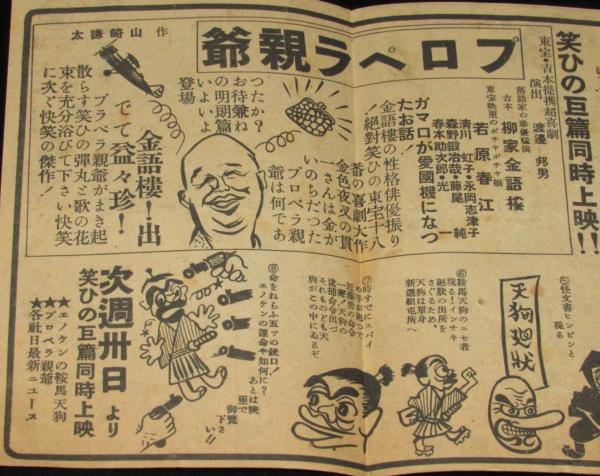 笑ひの巨篇同時上映!!
東宝・吉本提携超喜劇
演出 渡邊邦男
落語家の俳優猛演
吉本 柳家金語楼
東宝映画のボチヤボチヤ娘
若原春江
清川虹子・永岡志津子
森野鍛冶哉・藤尾純
春本助次郎・光一
プロペラ親爺
作 山崎謙太
ガマ口が愛國機になつ
たお話!
金語楼の性格俳優振り
!絶對笑ひの東宝十八
番の喜劇大作
金色夜叉の貫
一さんは金が
いのちだつた
プロペラ親
爺は何であ
つたか?
お待兼ね
の明朗篇
いよいよ
登場
金語樓!出
でて益々珍!
プラペラ親爺がまき起
散らす笑ひの弾丸と歌の花
束を充分浴びて下さい快笑
に次ぐ快笑の傑作!
⑤怪文書ヒンピンと
現る
天狗廻狀
⑥鞍馬天狗のニセ者
現る!インチキ
廻狀の出所を
さぐるため
天狗は單身
新選組屯所へ
⑦時すでにスパイ
の手が廻つて
近藤勇の命令
一塵!天狗の
逮捕命令出づ
それものども天
狗がこの中にゐるぞ
⑧命をねらふ五ツの銃口!
エノケンの運命や如何に?
あとは映
画で
御覽
下さ
い!!
次週卅日より
笑ひの巨篇同時上映
★エノケンの鞍馬天狗
★プロペラ親爺
★各社日最新ニュース